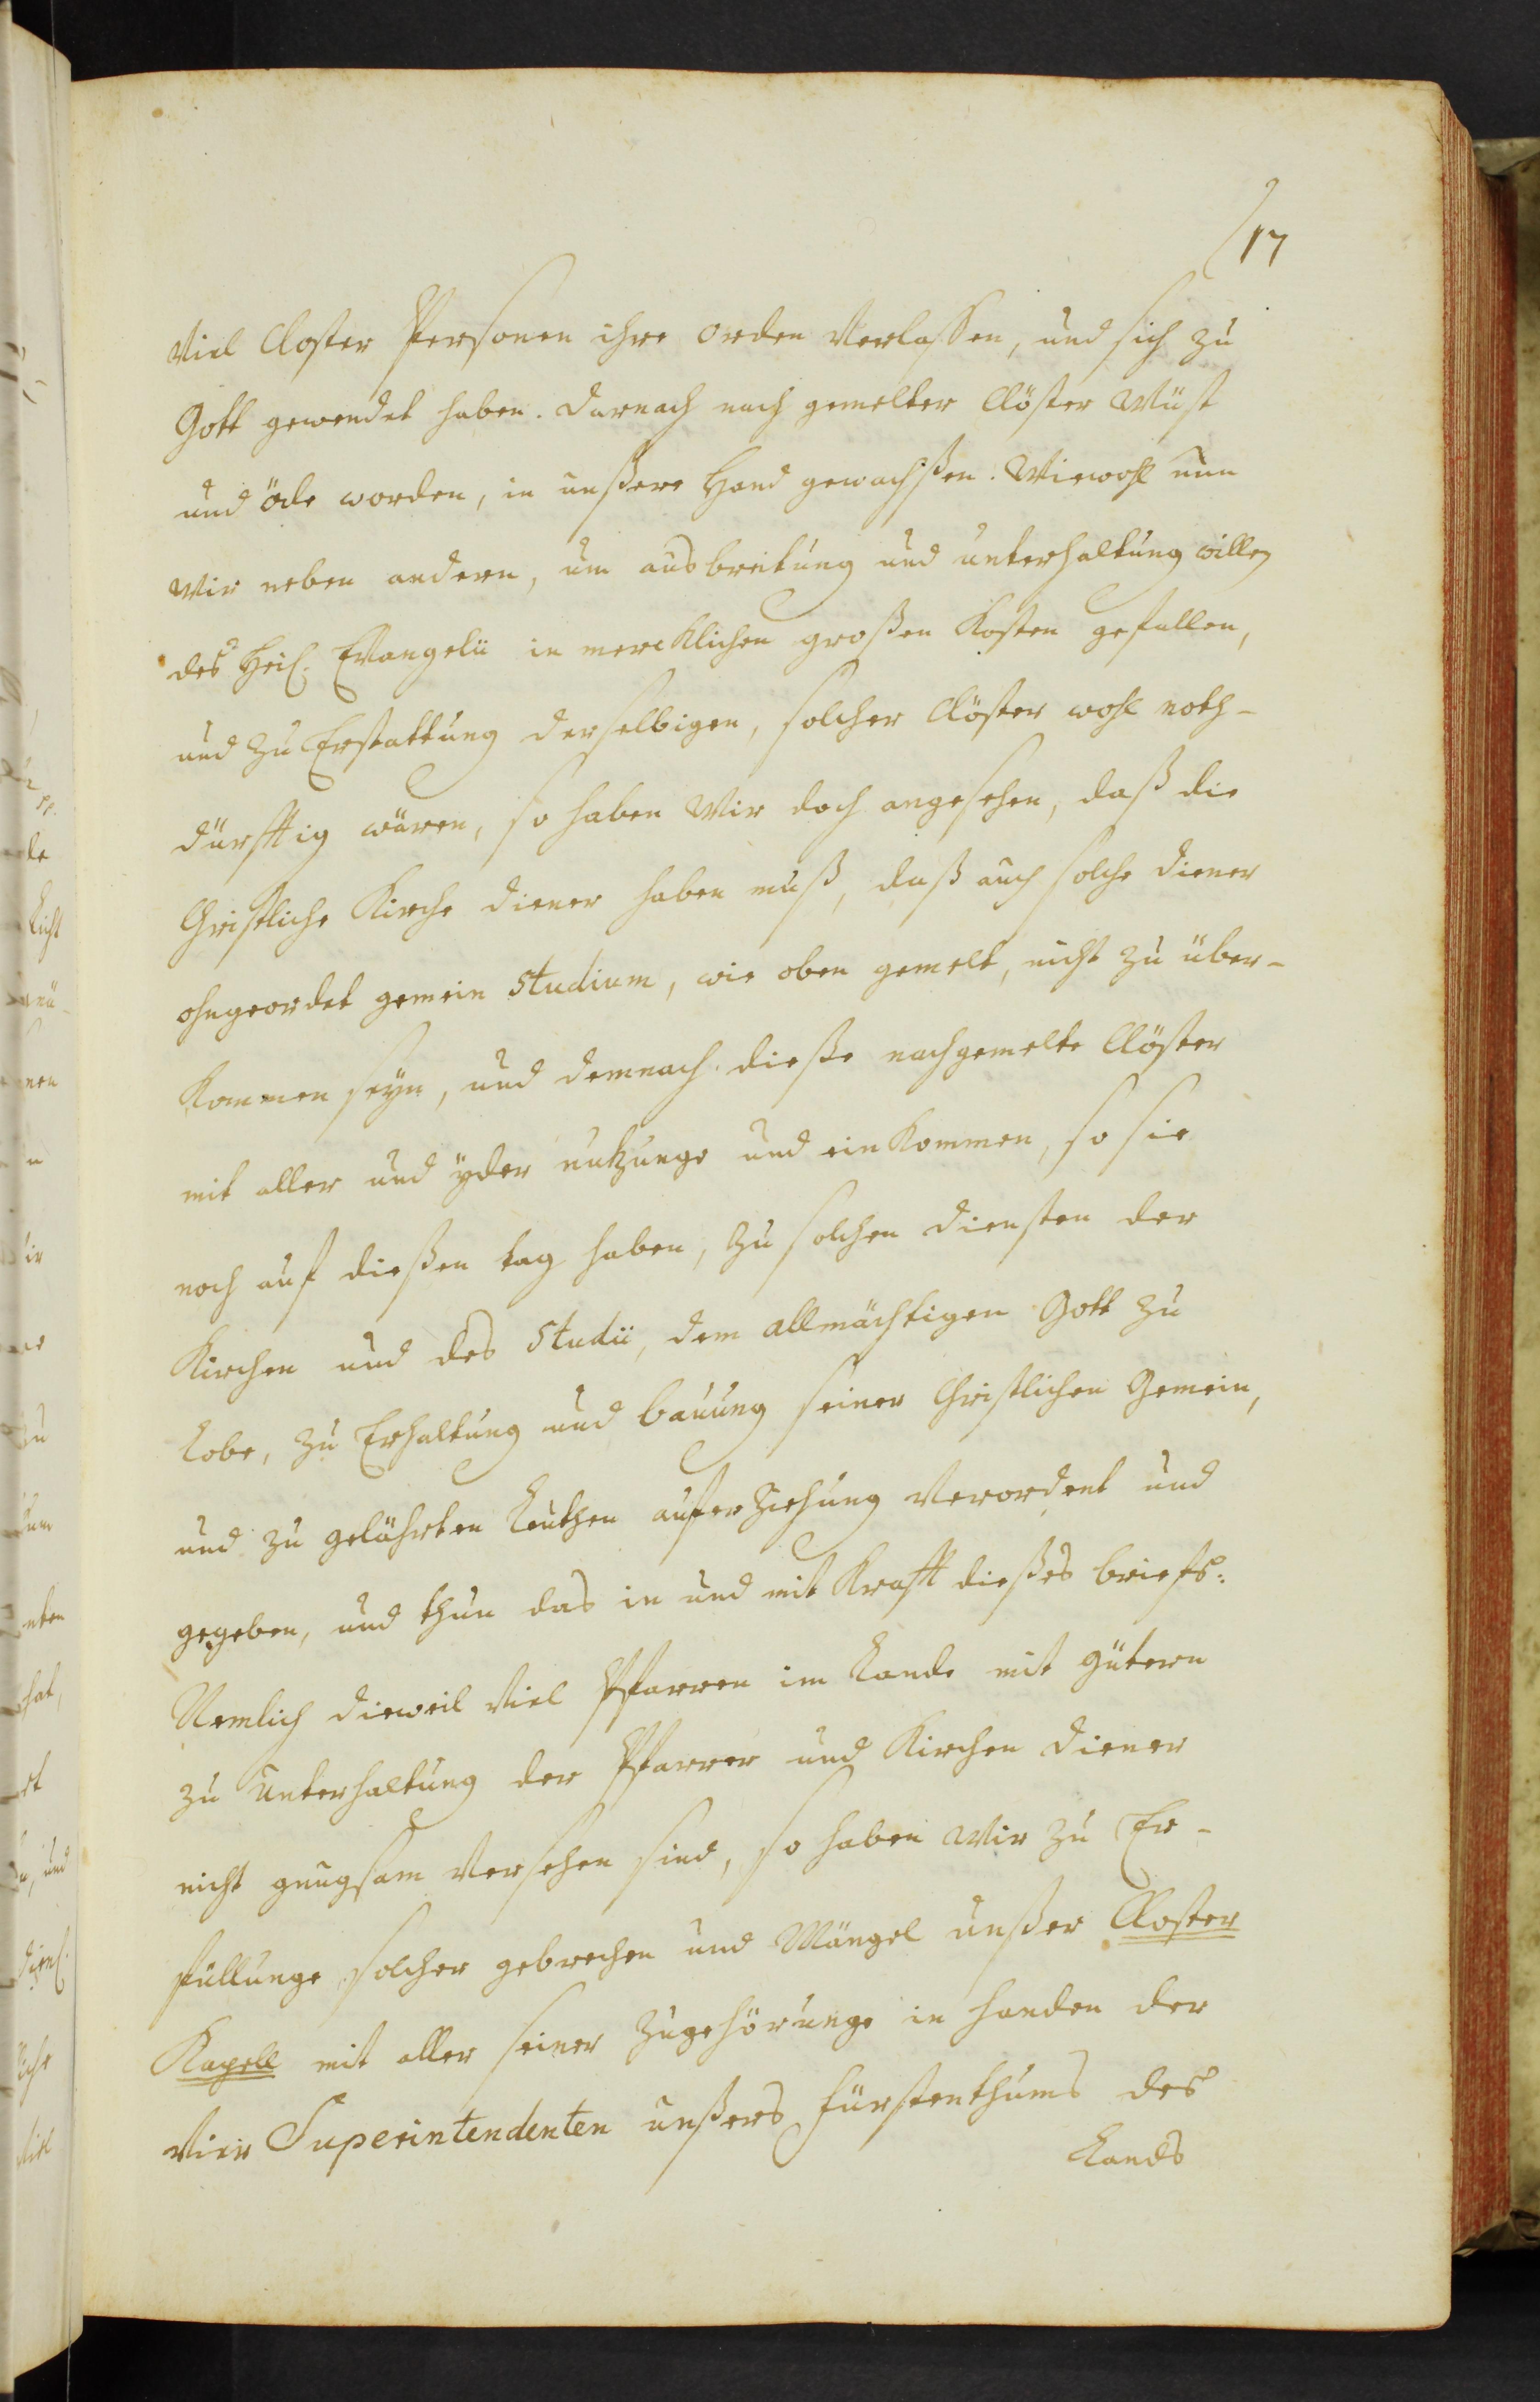 17
Viel Closter Personen ihre orden Verlaßen, und sich zu
Gott gewendet haben. darnach nach gemelter Clöster Wüst
und öde worden, in unßere Hand gewachßen. Wiewohl nun
Wir neben andern, um ausbreitung und unterhaltung willen
des Heil. Evangelii in mercklichen großen Kosten gefallen,
und zu Erstattung derselbigen, solcher Clöster wohl noth-
dürfftig wären, so haben Wir doch angesehen, daß die
Christliche Kirche diener haben muß, daß auch solche diener
ohngeordet gemein Studium, wie oben gemelt, nicht zu über-
kommen seyn, und demnach dieße nachgemelte Clöster
mit aller und yder nutzunge und einkommen, so sie
noch auf dießen tag haben, zu solchen diensten der
Kirchen und des Studii, dem allmächtigen Gott zu
Lobe, zu Erhaltung und bauung seiner Christlichen Gemein,
und zu gelährten Leuthen auferziehung Verordent und
gegeben, und thun das in und mit Krafft dießes briefs:
Nemlich dieweil Viel Pfarren im Lande mit gütern
zu Unterhaltung der Pfarrer und Kirchen diener
nicht gnugsam Versehen sind, so haben Wir zu Er-
füllunge solcher gebrechen und Mängel unßer Closter
Kapell mit aller seiner Zugehörunge in handen der
Vier Superintendenten unßers fürstenthums des
Lands